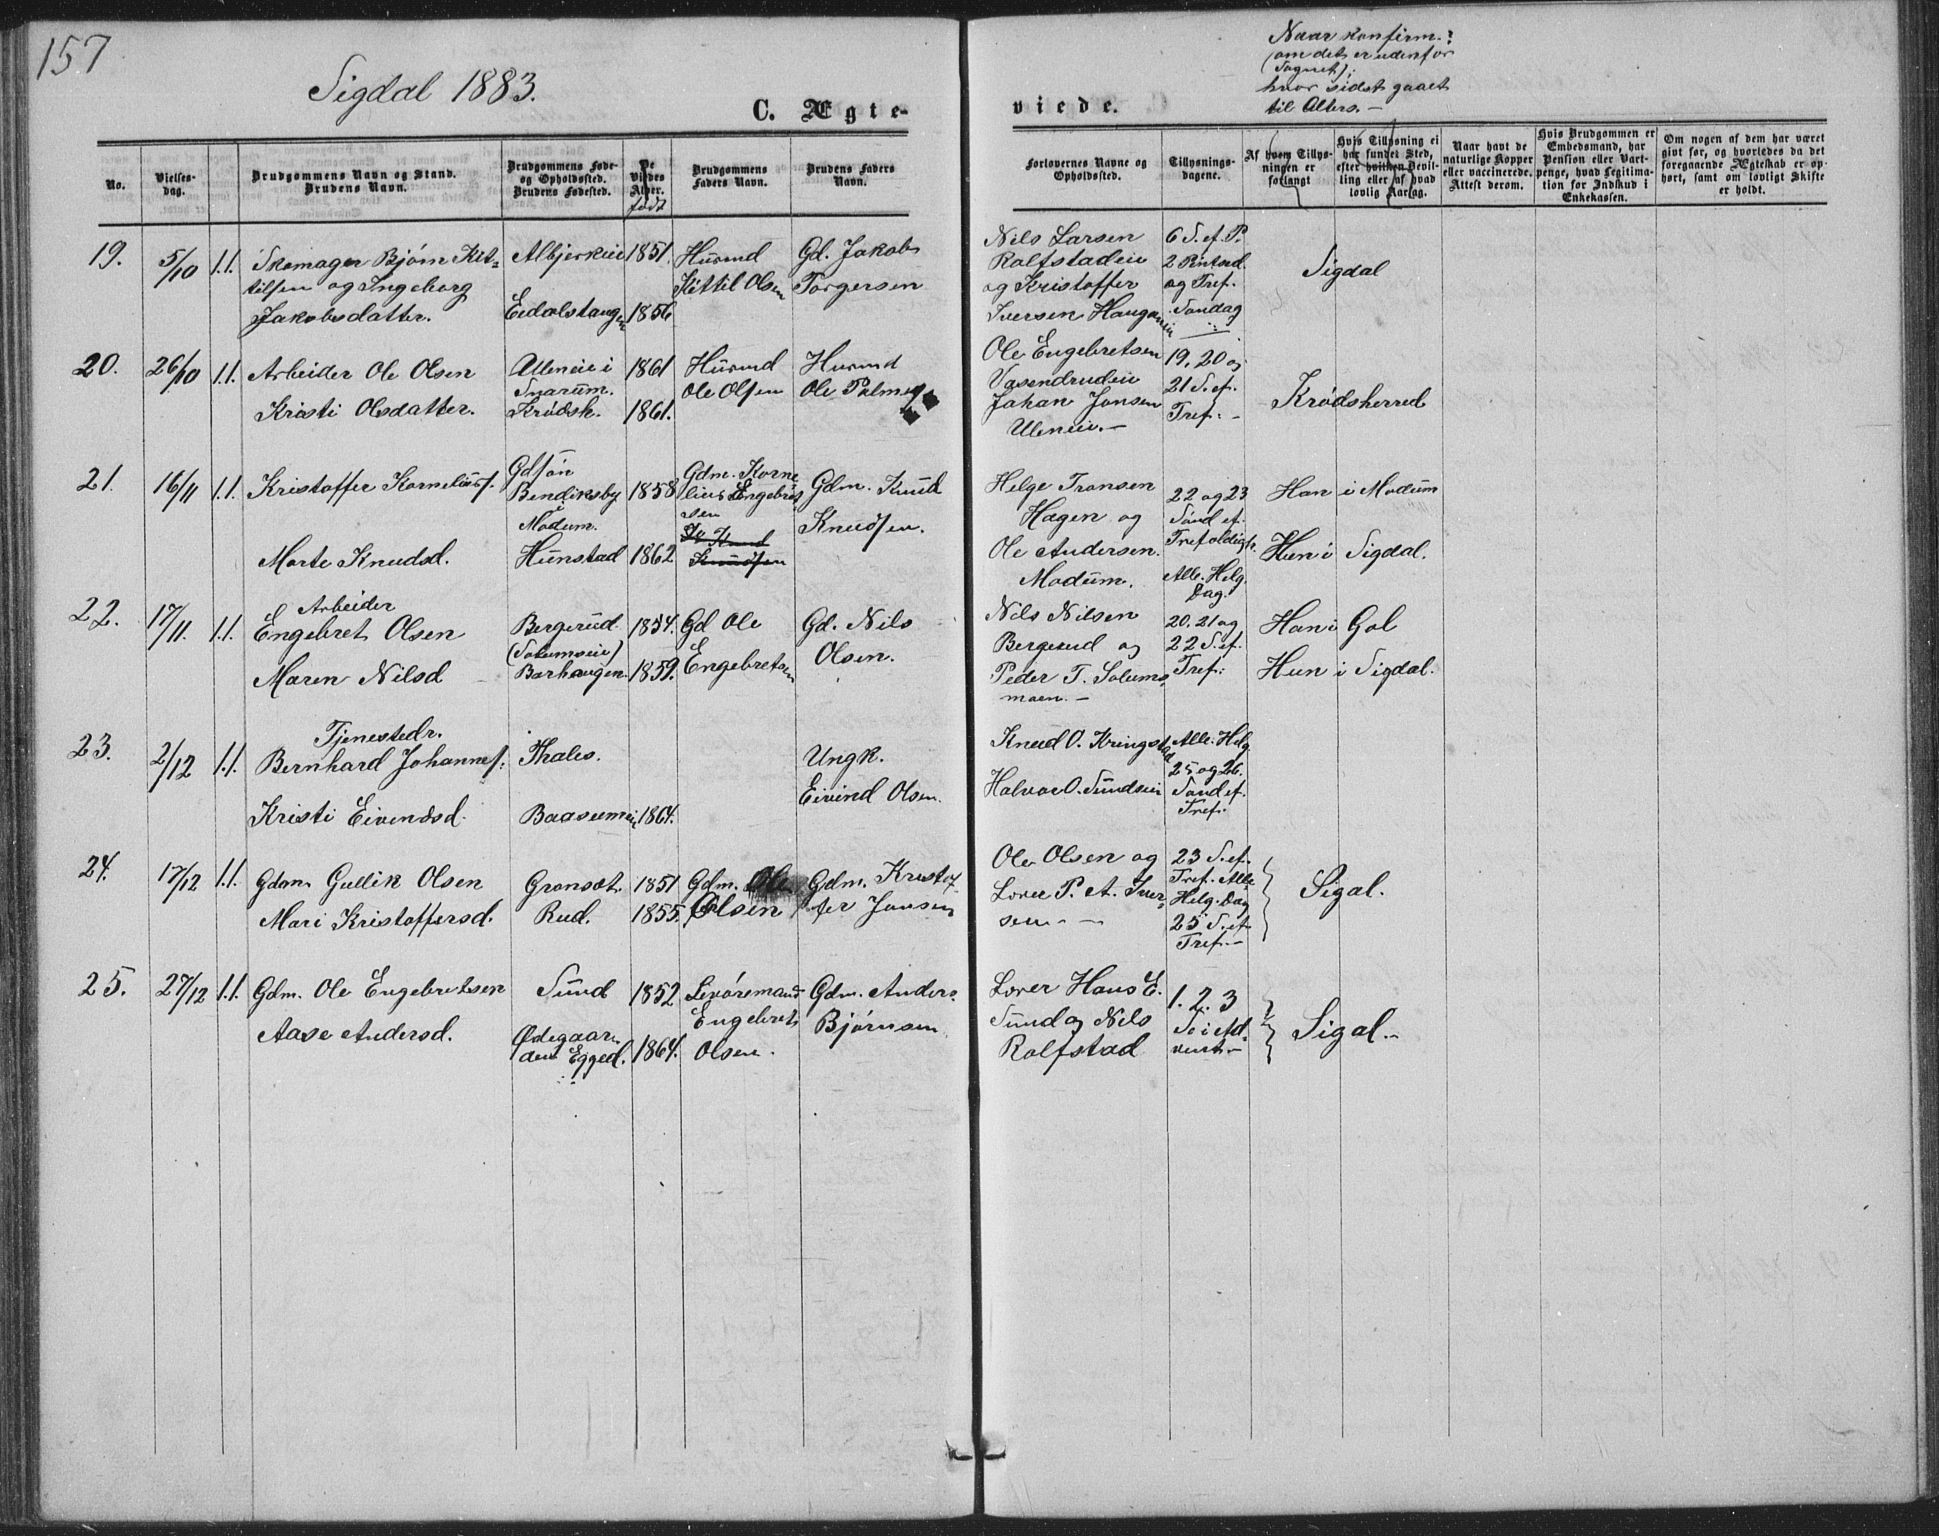 157
Sigdal 1883.
C. Ægte-
No.
Vielses-
dag.
Brudgommens Navn og Stand.
Brudens Navn.
Brudgommens Føde-
og Opholdssted.
Brudens Fødested.
De
Viedes
Alder.
født
Brudgommens
Faders Navn.
Brudens Faders
Navn.
19.
5/10
1.1.
Skomager Bjørn Kit-
tilsen og Ingeborg
Jakobsdatter.
Albjerkeie
Eidalstangen
1851.
1856
Husmd
Kittil Olsen
Gd. Jakob
Torgersen
20.
26/10
1.1.
Arbeider Ole Olsen
Kristi Olsdatter.
Ulleneie i
Snarum.
Krødsh.
1861
1861.
Husmd
Ole Olsen
Husmd
Ole Palmes
21.
16/11
1.1.
Kristoffer Korneliusf.
Marte Knudsd.
Gdsøn
Bendiksby
i
Modum.
Hunstad
1858
1862
Gdm. Korne
lius Engebret
sen
Gdm. Knud
Knudsen.
22.
17/11.
1.1.
Arbeider
Engebret Olsen
Maren Nilsd
Bergerud.
(Solumseie)
Barhaugen.
1854.
1859.
Gd Ole
Engebretsen
Gd. Nils
Olsen.
23.
2/12
1.1.
Tjenestedr.
Bernhard Johannesf.
Kristi Eivendsd.
Thales.
Baasumeie
1864.
Ungk.
Eivind Olsen.
24.
17/12
1.1.
Gdm Gullik Olsen
Mari Kristoffersd.
Grønsæt.
Rud.
1851
1855.
Gdm. Ole
Olsen
Gdm. Kristof
fer Jansen
25.
27/12
1.1.
Gdm. Ole Engebretsen
Aase Andersd.
Sund
Ødegaar
den Egged.
1852
1864.
Livøremand
Engebret
Olsen.
Gdm. Anders
Bjørnsen
viede.
Naar konfirm.?
(om det er udenfor
Sognet);
hvor sidst gaaet
til Alters.-
Forlovernes Navne og
Opholdssted.
Tillysnings-
dagene.
Af hvem Tillys-
ningen er
forlangt
Hvis Tillysning ei
har fundet Sted,
efter hvilken Bevil-
ling eller af hvad
lovlig Aarsag.
Naar havt de
naturlige Kopper
eller vaccinerede.
Attest derom.
Hvis Brudgommen er
Embedsmand, har
Pension eller Vart-
penge, hvad Legitima-
tion for Indskud i
Enkekassen.
Om nogen af dem har været
gift før, og hvorledes da det
foregaaende Ægteskab er op-
hørt, samt om lovligt Skifte
er holdt.
Nils Larsen
Rolfstadeie
og Kristoffer
Iversen Haugeneie
6 S. ef. P.
2 Pintsd.
og Tref.
Søndag
Sigdal
Ole Engebretsen
Vasendrudeie
Johan Jonsen
Uleneie.-
19, 20 og
21 S. ef.
Tref.-
Krødsherred
Helge Tronsen
Hagen og
Ole Andersen.
Modum.
22 og 23
Sønd ef.
Trefoldigh.
Alle. Helg.
Dag.
Han i Modum
Hun i Sigdal.
Nils Nilsen
Bergerud og
Peder T. Solums
moen.-
20. 21 og
22 S. ef.
Tref:
Han i Gol
Hun i Sigdal.
Knud O. Kringstad
Halvor O. Sundseie
Alle. Helg.
25 og 26.
Sønd ef.
Tref.
Ole Olsen og
Lærer P. A. Iver-
sen.-
23 S. ef.
Tref. Alle
Helg. Dag
25 S. ef
Tref.-
Sigal.
Lærer Hans E.
Sund og Nils
Rolfstad
1. 2. 3
So i Ad-
vent-
Sigal.-